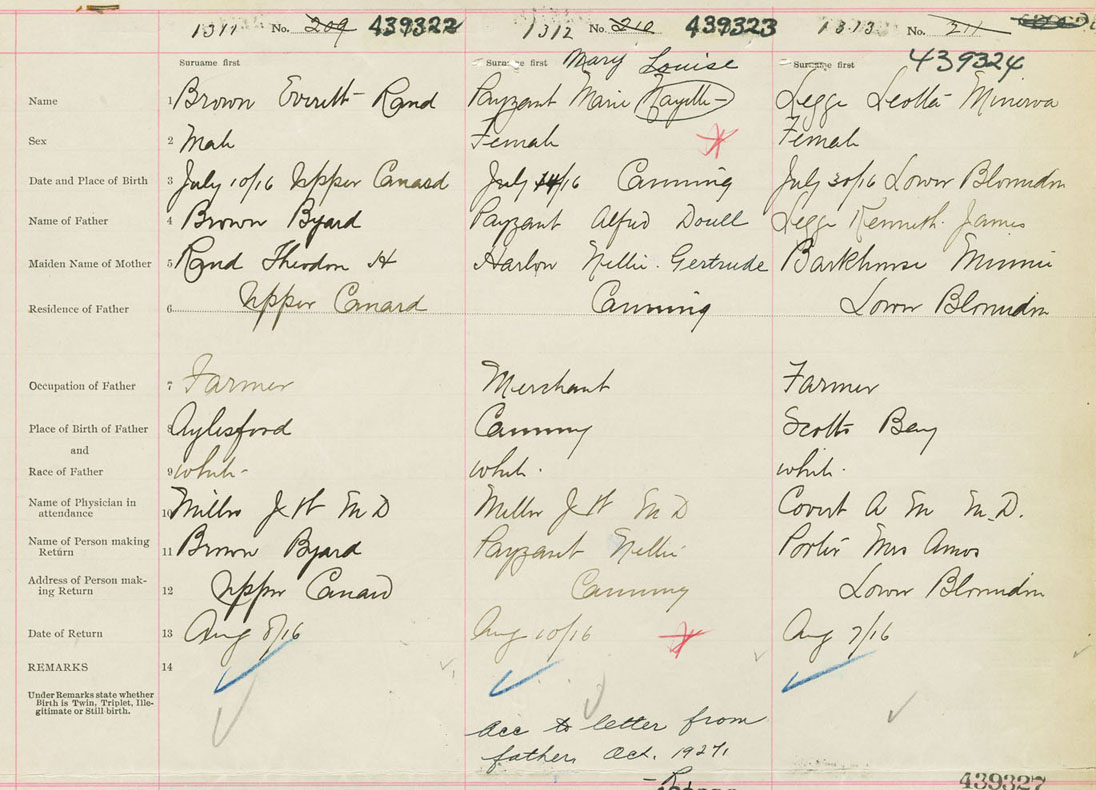 1311 No. 209 439322 1312 No. 210 439323 1313 No. 211
439324
Surname first Surname first Mary Louise Surname first
Name 1 Brown Everett Rand Payzant Marie Legge Leotta Minerva
Sex 2 Male Female Female
Date and Place of Birth 3 July 10/16 Upper Canard July 14/16 Canning July 30/16 Lower Blomidon
Name of Father 4 Brown Byard Payzant Alfred Doull Legge Kenneth James
Maiden Name of Mother 5 Rand Theodora H Harlow Nellie Gertrude Barkhouse Minnie
Residence of Father 6 Upper Canard Canning Lower Blomidon
Occupation of Father 7 Farmer Merchant Farmer
Place of Birth of Father 8 Aylesford Canning Scotts Bay
and
Race of Father 9 white white white
Name of Physician in
attendance 10 Miller J H M D Miller J H M D Covert A M M.D.
Name of Person making
Return 11 Brown Byard Payzant Nellie Porter Mrs Amos
Address of Person mak-
ing Return 12 Upper Canard Canning Lower Blomidon
Date of Return 13 Aug 8/16 Aug 10/16 Aug 7/16
REMARKS 14
Under Remarks state whether
Birth is Twin, Triplet, Ille-
gitimate or Still-birth.
acc to letter from
father, Oct. 1927
439327